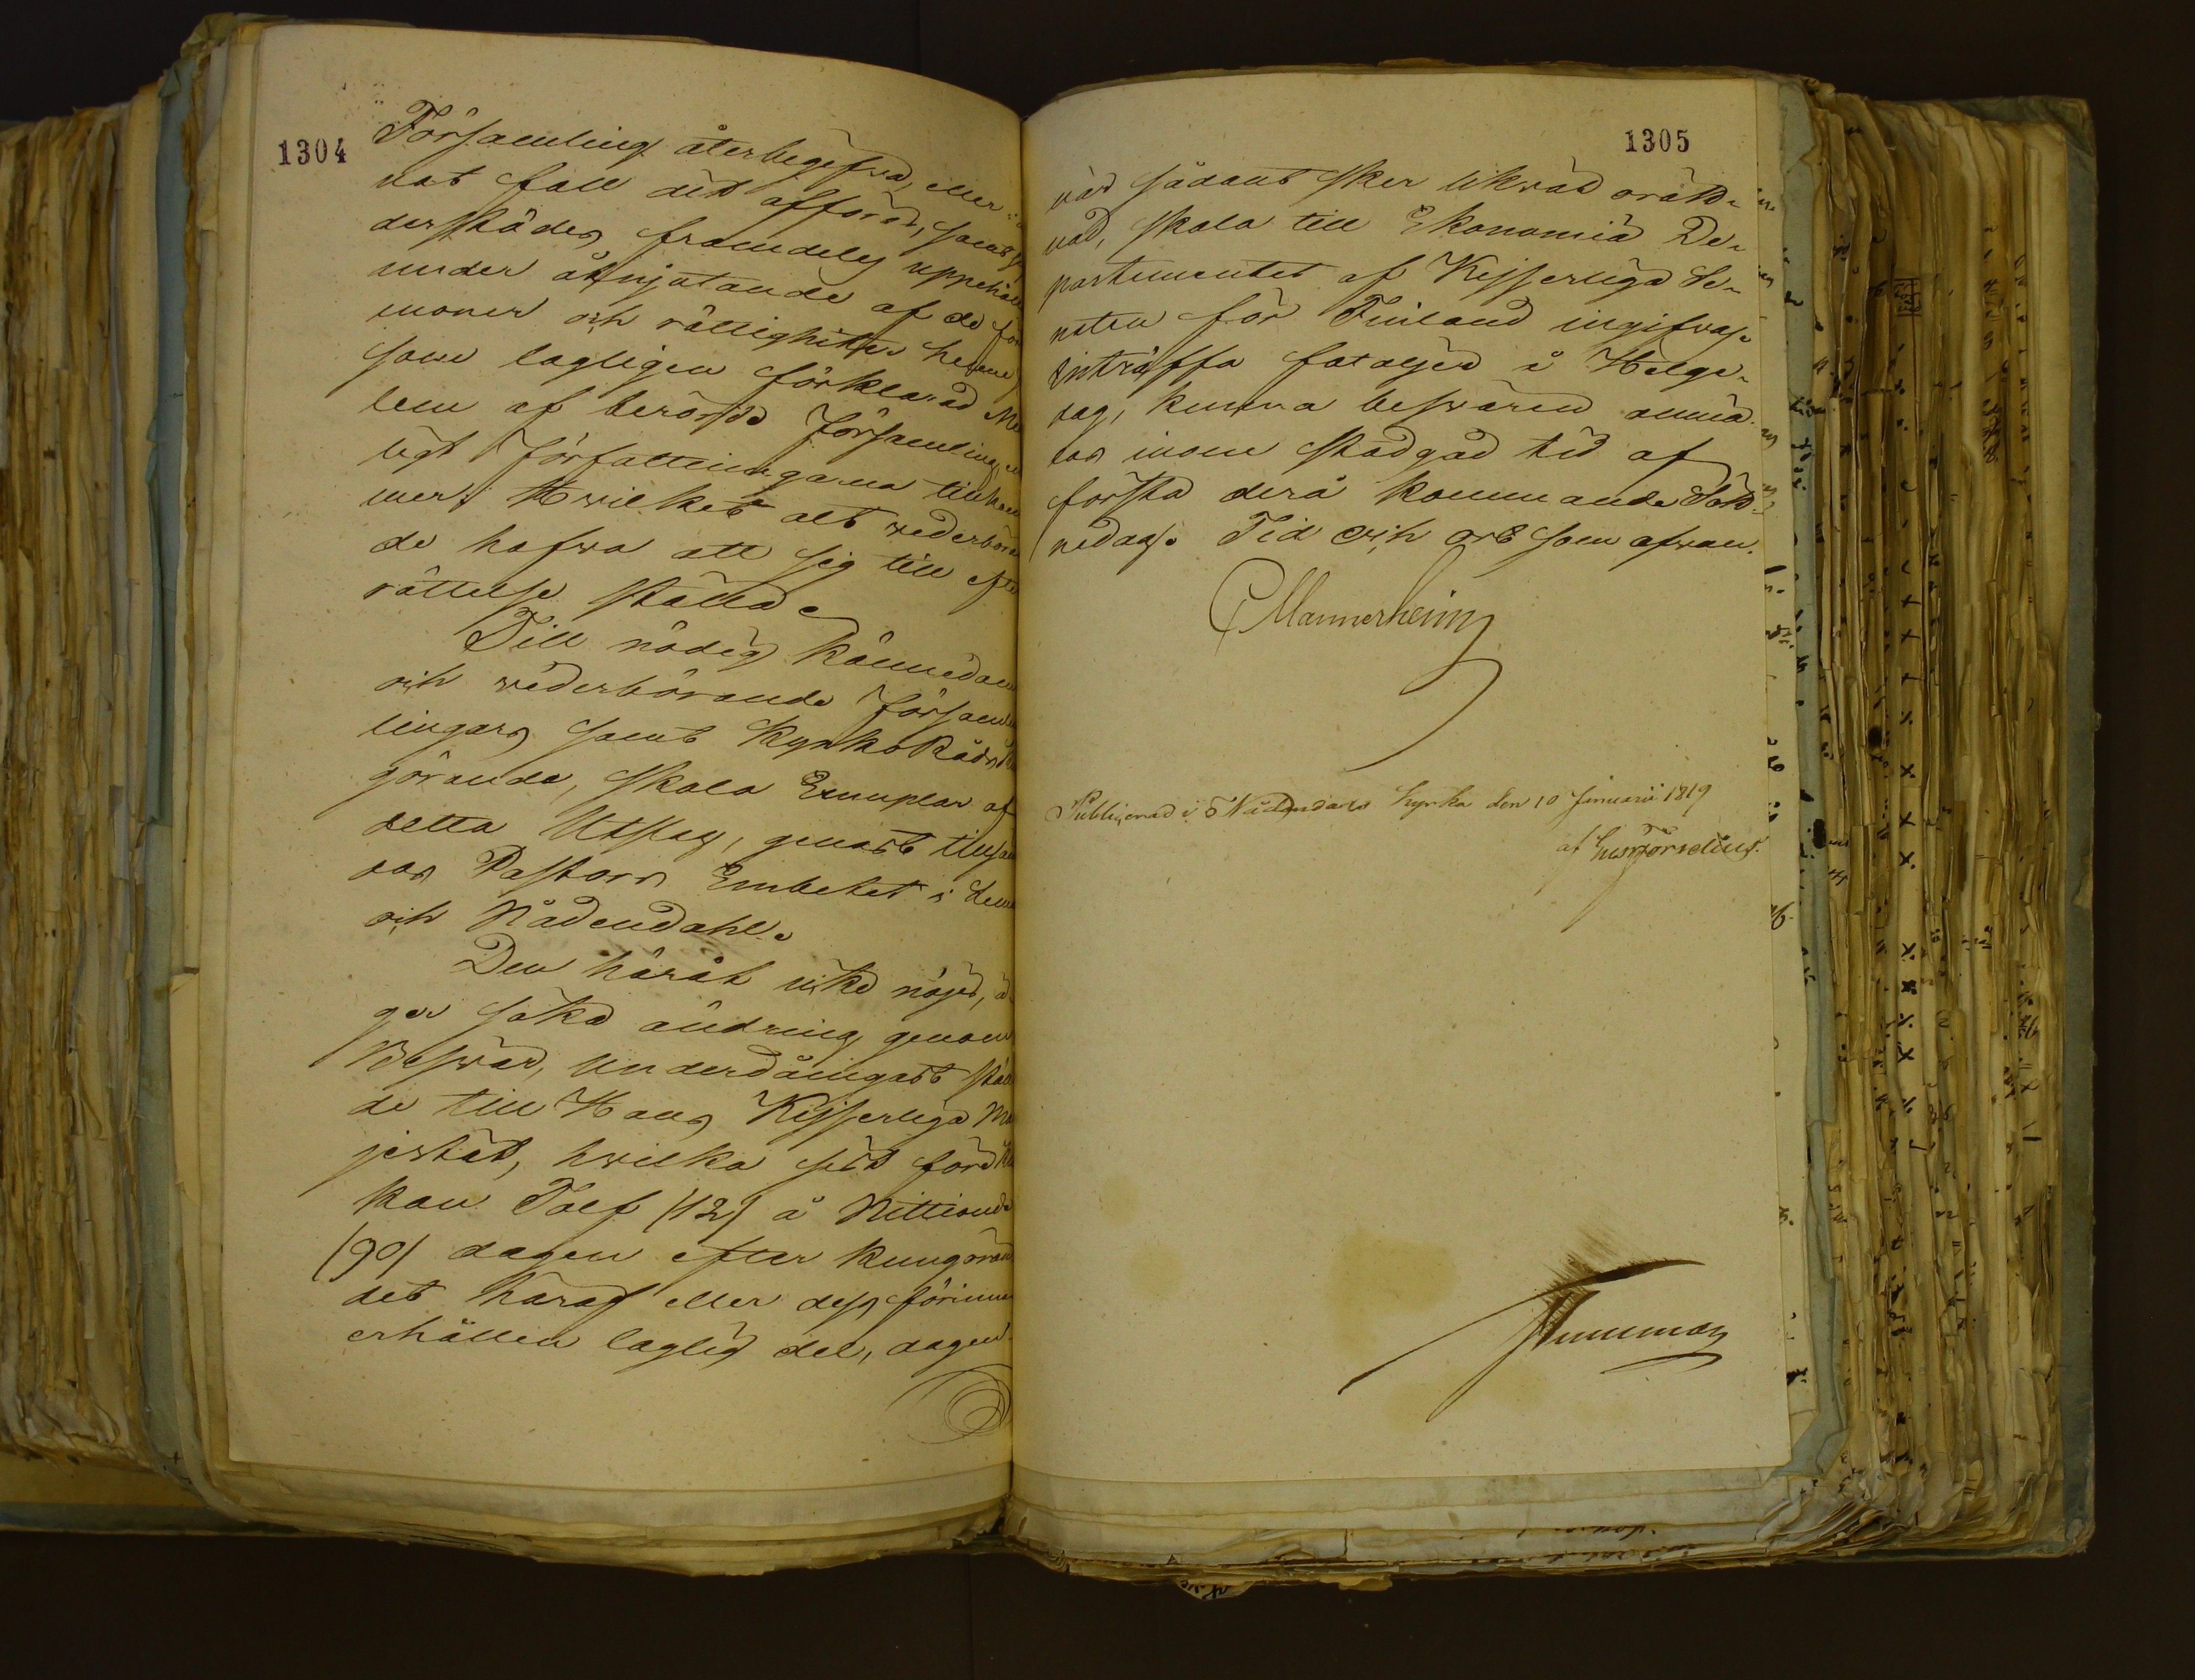 1304
Församling återbegifwa, eller i
nat fall dit afförd, samt
derstädes framdeles uppehåll
under åtnjutande af de för
moner och rättigheter henne
som lagligen förklarad Me
lem af berörde Församling en
ligt författningarna tillkom
mer; Hwilket alt wederböran
de hafwa att sig till efter
rättelse ställa.
Till nödig kännedom
och wederbörande Försam
lingars samt KyrkoRåds
görande, skola Exemplar af
detta Utslag, genast tillsän
das Pastors Embetet i Lemo
och Nådendahl.
Den häråt icke nöjes, ä
ger söka ändring genom
Beswär, Underdånigast stäl
de till Hans Kejserliga Ma
jestät, hwilka sist före kl
kan Tolf (12) å Nittionde
(90) dagen efter kungöran
det häraf eller dess förinnan
erhållen laglig del, dagen
1305
när sådant sker likwäl oräk-
nad, skola till Ekonomiæ De-
partementet af Kejserliga Se-
naten för Finland ingifwas.
Inträffa fataljen å Helge-
dag, kunna beswären anmä-
las inom stadgad tid af
första derå kommande Sök-
nedag. Tid och ort som ofwan.
C Mannerheim
Publicerad i Nådendals kyrka den 10 Januarii 1819
af